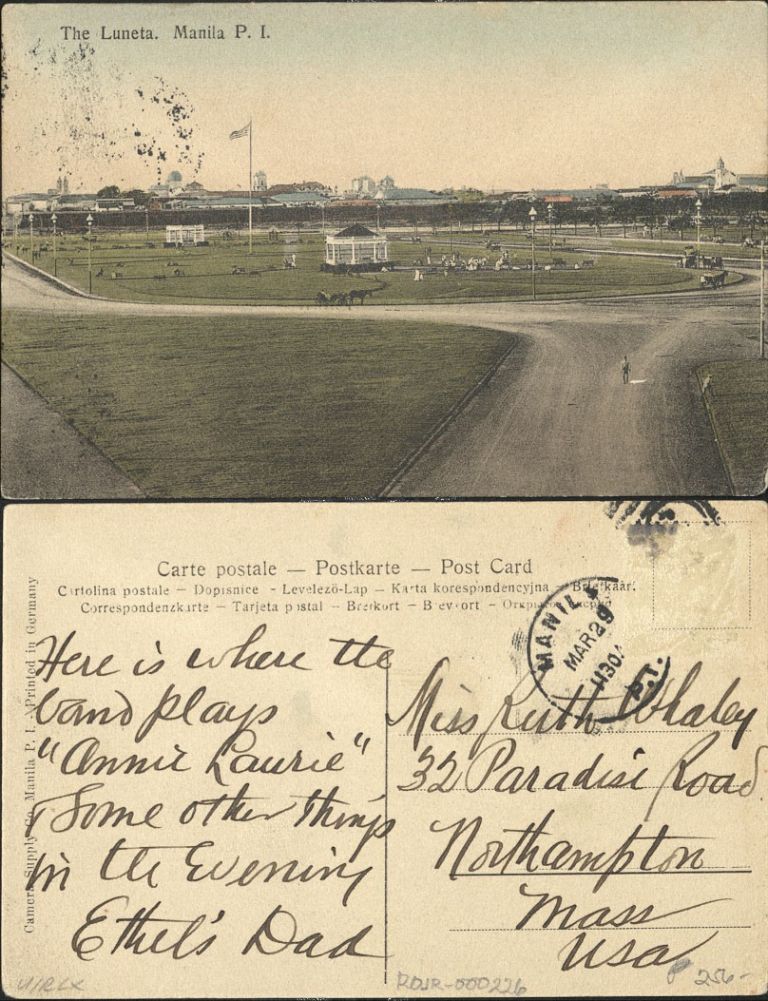 The Luneta. Manila P. I.
Carte postale — Postkarte — Post Card
Cartolina postale – Dopisnice - Levelező-Lap – Karta korespondencyjna –
Correspondenzkarte – Tarjeta postal – Brefkort –
Camera Supply Co. Manila P. I. - Printed in Germany
MANILA
MAR 29
1130A
P.I.
Here is where the
band plays
"Annie Laurie"
& Some other things
in the Evening
Ethel's Dad
Miss Ruth Whaley
32 Paradise Road
Northampton
Mass
USA
RDJR-000226
256-